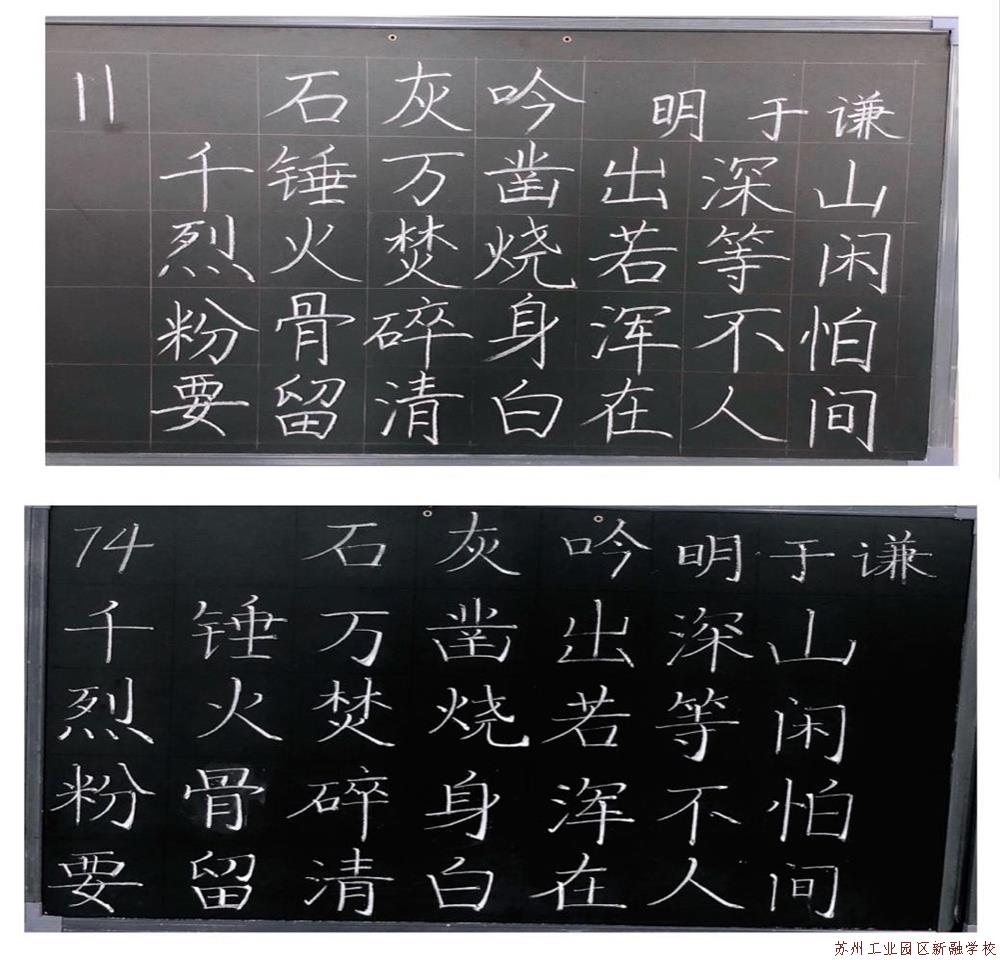 11 石灰吟 明 于谦
千锤万凿出深山
烈火焚烧若等闲
粉骨碎身浑不怕
要留清白在人间
74 石灰吟 明 于谦
千锤万凿出深山
烈火焚烧若等闲
粉骨碎身浑不怕
要留清白在人间
苏州工业园区新融学校